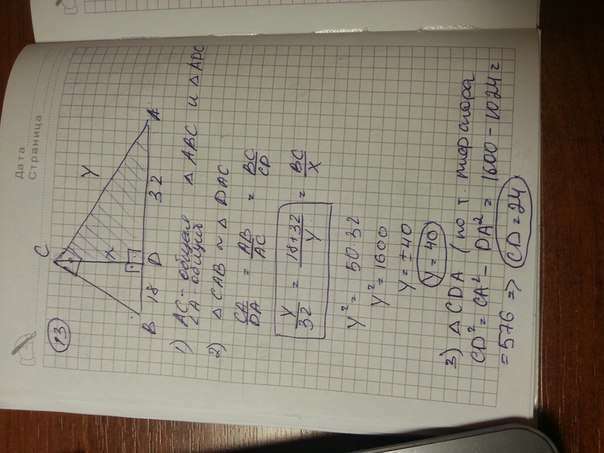 Дата
Страница
73
C
Y
X
B
18
D
32
A
1) AC - общая △ ABC и △ ADC
∠A общий
2) △ CAB ~ △ DAC
CA/DA = AB/AC = BC/CD
Y/32 = 18+32/Y = BC/X
Y² = 50·32
Y² = 1600
Y = ±40
Y = 40
3) △ CDA (по т. пифагора
CD² = CA² - DA² = 1600 - 1024 =
= 576 => CD = 24